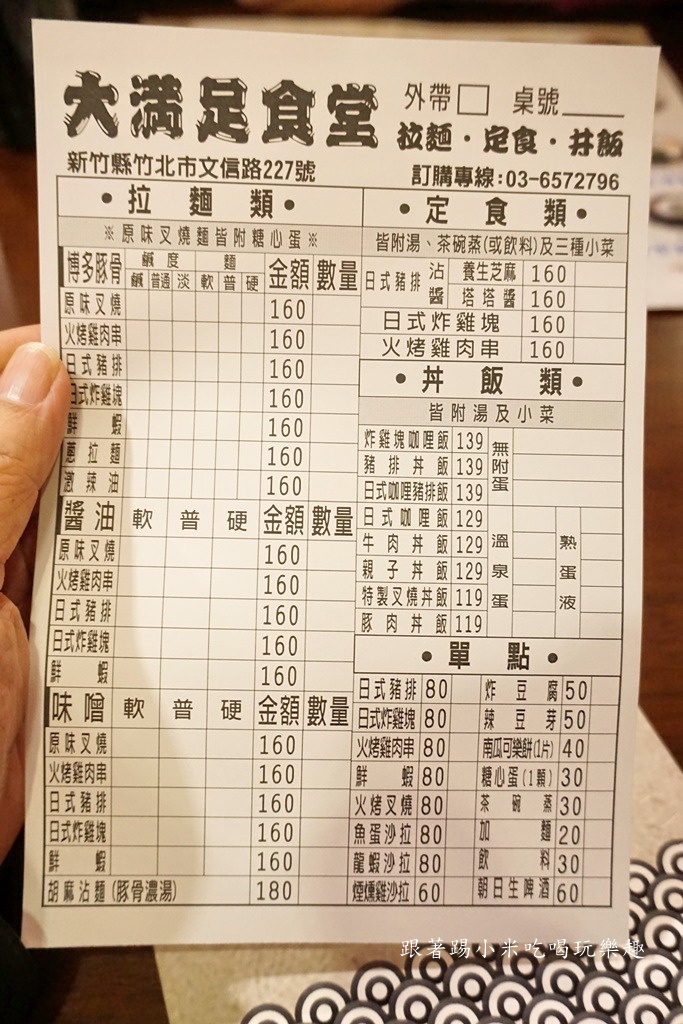 大滿足食堂
外帶□ 桌號____
拉麵・定食・丼飯
新竹縣竹北市文信路227號
訂購專線:03-6572796
•拉麵類•
※原味叉燒麵皆附糖心蛋※
博多豚骨 鹹度 麵 金額 數量
鹹 普通 淡 軟 普 硬
原味叉燒 160
火烤雞肉串 160
日式豬排 160
日式炸雞塊 160
鮮蝦 160
蔥拉麵 160
激辣油 160
醬油 軟 普 硬 金額 數量
原味叉燒 160
火烤雞肉串 160
日式豬排 160
日式炸雞塊 160
鮮蝦 160
味噌 軟 普 硬 金額 數量
原味叉燒 160
火烤雞肉串 160
日式豬排 160
日式炸雞塊 160
鮮蝦 160
胡麻沾麵(豚骨濃湯) 180
•定食類•
皆附湯、茶碗蒸(或飲料)及三種小菜
日式豬排 沾醬 養生芝麻 160
塔塔醬 160
日式炸雞塊 160
火烤雞肉串 160
•丼飯類•
皆附湯及小菜
炸雞塊咖哩飯 139 無附蛋
豬排丼飯 139
日式咖哩豬排飯 139
日式咖哩飯 129 溫泉蛋 熟蛋液
牛肉丼飯 129
親子丼飯 129
特製叉燒丼飯 119
豚肉丼飯 119
•單點•
日式豬排 80 炸豆腐 50
日式炸雞塊 80 辣豆芽 50
火烤雞肉串 80 南瓜可樂餅(1片) 40
鮮蝦 80 糖心蛋(1顆) 30
火烤叉燒 80 茶碗蒸 30
魚蛋沙拉 80 加麵 20
龍蝦沙拉 80 飲料 30
煙燻雞沙拉 60 朝日生啤酒 60
跟著踢小米吃喝玩樂趣